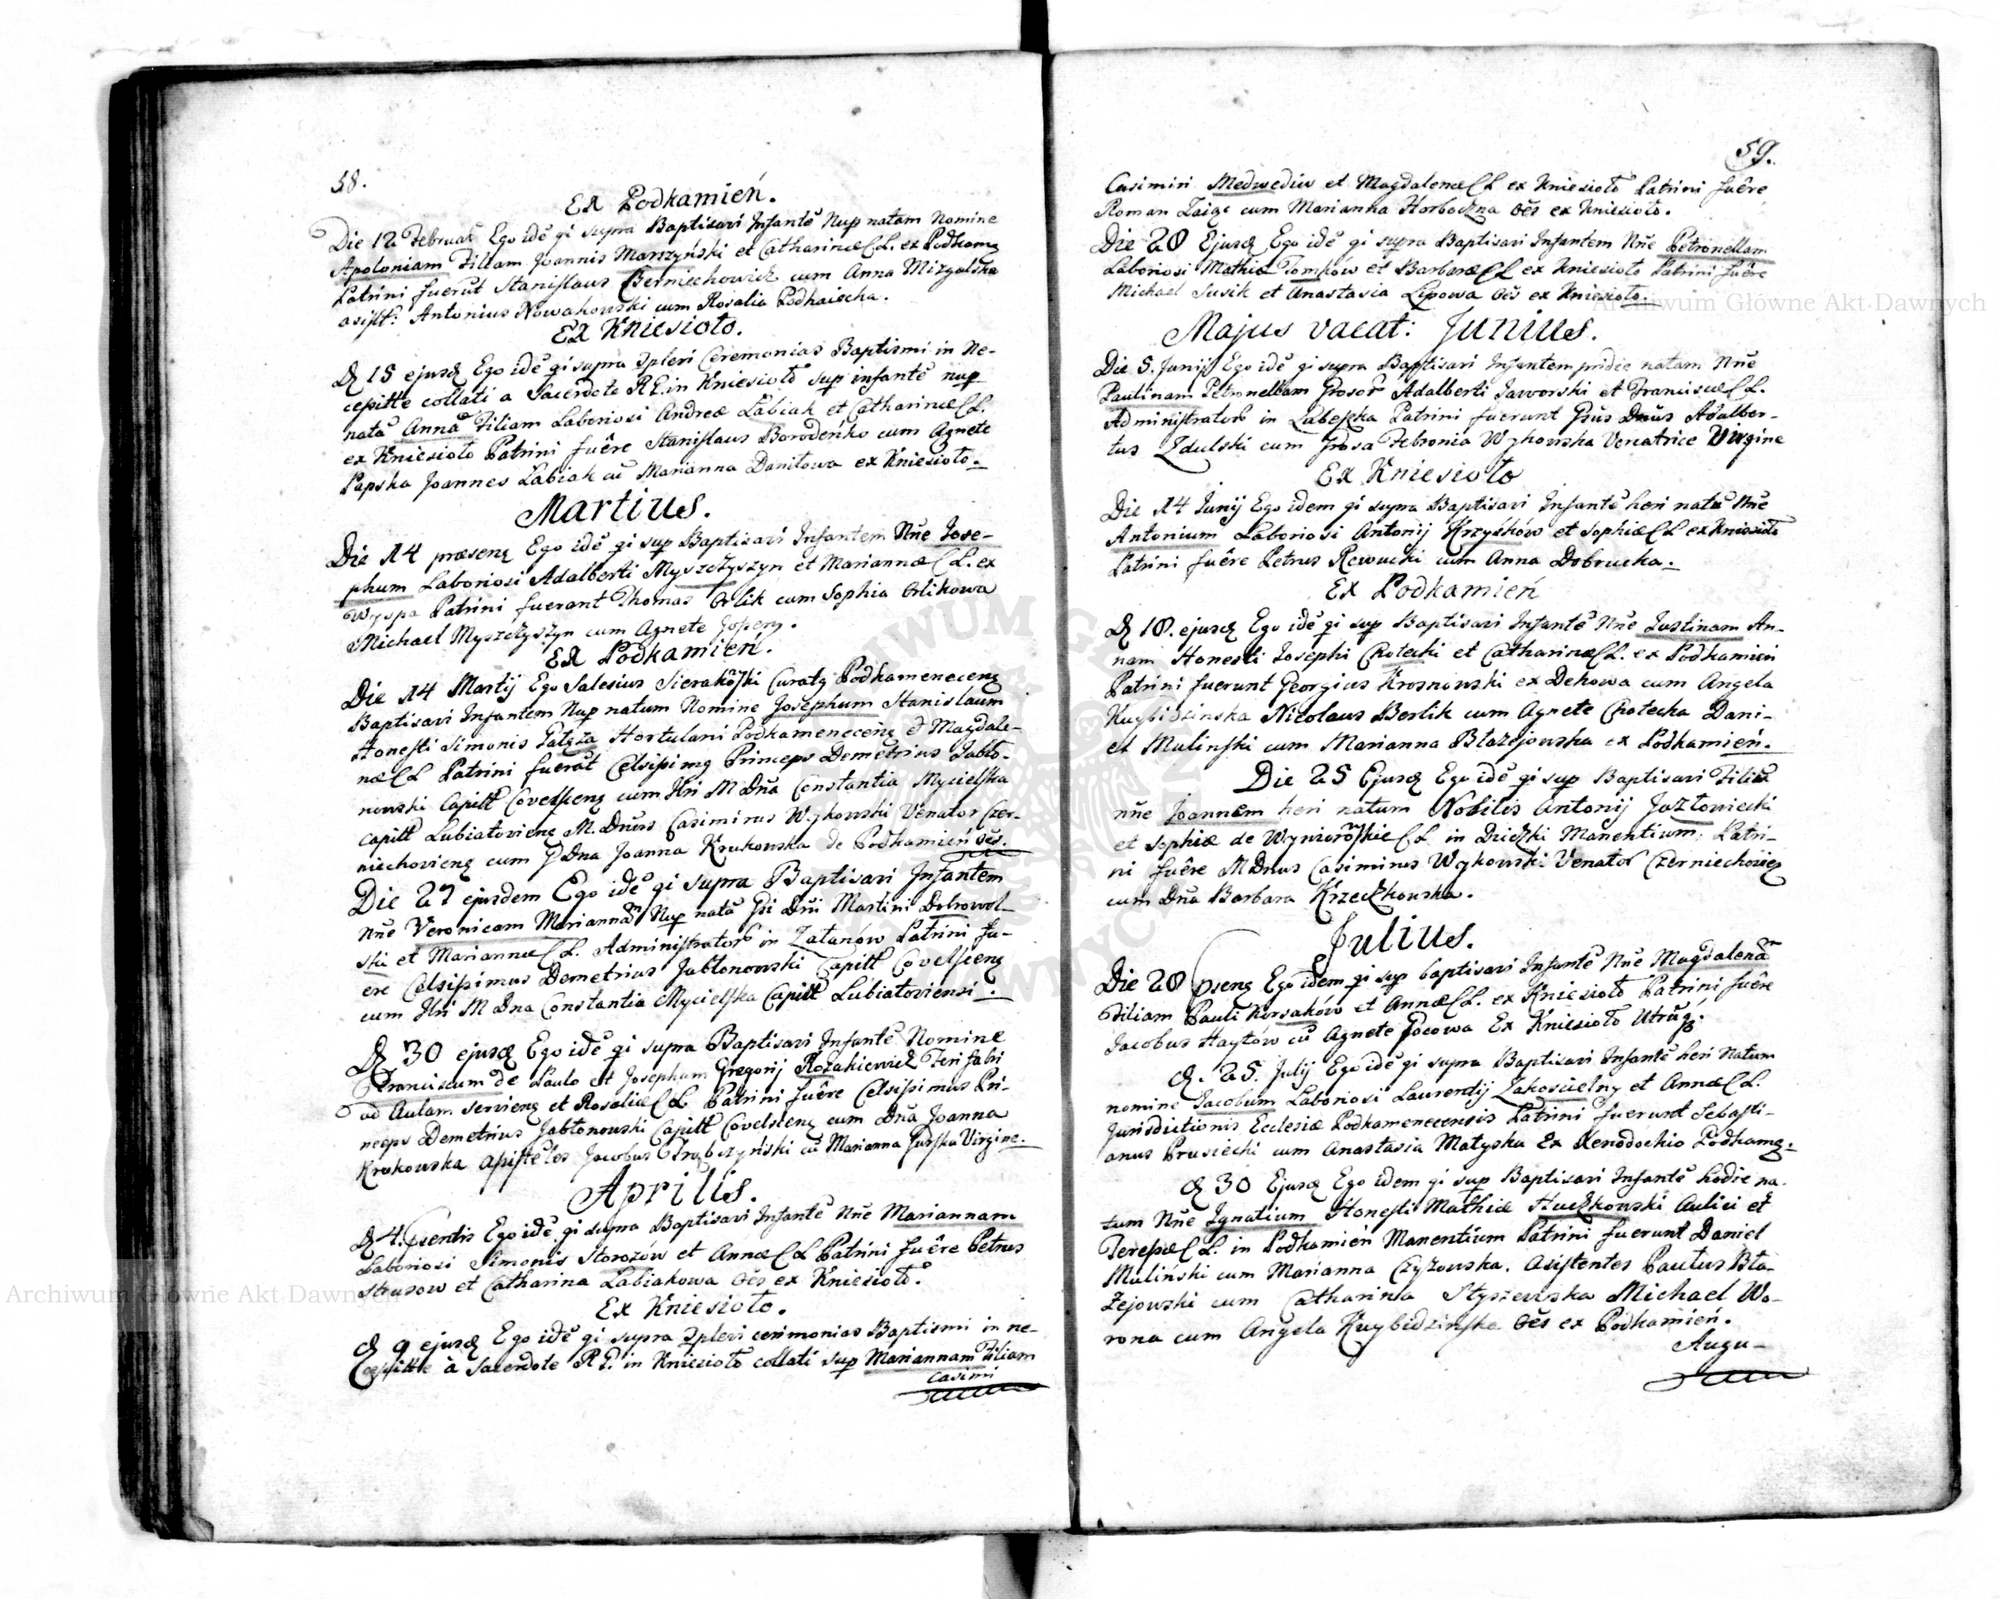 58.
Ex Podkamień.
Die 12 Februar Ego idē qi supra Baptisavi Infantē Nup natam Nomine
Apoloniam Filiam Joannis Marszyński et Catharinæ C.L. ex Podkamę
Patrini fuerūt Stanislaus Berniechowicz cum Anna Mizgalska
asist: Antonius Nowakowski cum Rosalia Podhaiecka.
Ex Kniesioło.
D 15 ejusq Ego idē qi supra Ipleri Ceremonias Baptismi in Ne-
cesitte collati a Sacerdote R.G. in Kniesioło sup infantē nup
natā Annā Filiam Laboriosi Andreæ Łabiak et Catharinæ C.L.
ex Kniesioło Patrini fuêre Stanislaus Borodeńko cum Agnete
Papska Joannes Łabiak cū Marianna Daniłowa ex Kniesioło.
Martius.
Die 14 præsenę Ego idē qi sup Baptisavi Infantem Nñe Jose-
phum Laboriosi Adalberti Myszczyszyn et Mariannæ C.L. ex
Wyspa Patrini fuerunt Thomas Orlik cum Sophia Orlikowa
Michael Myszczyszyn cum Agnete
Ex Podkamień.
Die 14 Martij Ego Salesius Sierakowski Curatq Podkamenecenę
Baptisavi Infantem Nup natum Nomine Josephum Stanislaum
Honesti Simonis Hortulani Podkamenecenę & Magdale-
næ C.L. Patrini fuerūt Celsisimq Princeps Demetrius Jabło-
nowski Capitt Covelsienę cum Ilri M Dña Constantia Mycielska
Capitt Lubiatovienę M. Dñus Casimirus Wykowski Venator Czer-
niechovienę cum G Dna Joanna Krukowska de Podkamień oēs.
Die 27 ejusdem Ego idē qi supra Baptisavi Infantem
Nñe Veronicam Mariannam Nup natā Gsi Dñi Martini Dobrowol-
ski et Mariannæ C.L. Administrator in Załanów Patrini fu-
ere Celsisimus Demetrius Jabłonowski Capitt Covelsienę
cum Ilri M Dna Constantia Mycielska Capitt Lubiatoviensi.
D 30 ejusq Ego idē qi supra Baptisavi Infantē Nomine
Franciscum de Paulo et Josephum Gregorij Rozakiewicz Feri fabri
ad Aulam servienę et Rosaliæ C.L. Patrini fuêre Celsisimus Pri-
neeps Demetrius Jabłonowski Capitt Covelsienę cum Dña Joanna
Krukowska Asistētes Jacobus Trąbczyński cū Marianna Virgine.
Aprilis.
D 4. psentis Ego idē qi supra Baptisavi Infantē Nñe Mariannam
Laboriosi Simonis Storozów et Annæ C.L. Patrini fuêre Petrus
Strusow et Catharina Łabiakowa oēs ex Kniesioło.
Ex Kniesioło.
D 9 ejusq Ego idē qi supra Ipleri cerimonias Baptismi in ne-
cesitte à Sacerdote R.G. in Kniesioło collati sup Mariannam Filiam
Casimi
59.
Casimiri Medwediw et Magdalenæ C.L. ex Kniesioło Patrini fuêre
Roman Zaige cum Marianna Horboczna oēs ex Kniesioło.
Die 28 Ejusq Ego idē qi supra Baptisavi Infantem Nñe Petronellam
Laboriosi Mathiæ Tomków et Barbaræ C.L. ex Kniesioło Patrini fuêre
Michael Susik et Anastasia Lipowa oēs ex Kniesioło.
Majus vacat: Junius.
Die 5. Junij Ego idē qi supra Baptisavi Infantem pridie natam Nñe
Paulinam Petronellam Gnosor Adalberti Jaworski et Franciscæ C.L.
Administrator in Lubeszka Patrini fuerunt Gsus Dnus Adalber-
tus Zdulski cum Gnosa Febronia Wykowska Venatrice Virgine
Ex Kniesioło
Die 14 Junij Ego idem qi supra Baptisavi Infantē heri natū Nñe
Antonium Laboriosi Antonij Krzyśków et Sophiæ C.L. ex Kniesioło
Patrini fuêre Petrus Rewucki cum Anna Dobrucka.
Ex Podkamień
D 18. ejusq Ego idē qi sup Baptisavi Infantē Nñe Justinam An-
nam Honesti Josephi Chołecki et Catharinæ C.L. ex Podkamień
Patrini fuerunt Georgius Krosnowski ex Dehowa cum Angela
Kuybidzinska Nicolaus Berlik cum Agnete Chołecka Dani-
el Mulinski cum Marianna Błażejowska ex Podkamień.
Die 25 Ejusq Ego idē qi sup Baptisavi Filiū
nñe Joannem heri natum Nobilis Antonij Jazłowiecki
et Sophiæ de Wywiorowskie C.L. in Dziczki Manentium: Patri-
ni fuêre M Dnus Casimirus Wykowski Venator Czerniechovięz
cum Dña Barbara Krzeczkowska.
Julius.
Die 20 psenę Ego idem qi sup baptisavi Infantē Nñe Magdalenam
Filiam Pauli Korsaków et Annæ C.L. ex Kniesioło Patrini fuêre
Jacobus Haytów cū Agnete Pocowa Ex Kniesioło utrūq.
D. 25. Julij Ego idē qi supra Baptisavi Infantē heri natum
nomine Jacobum Laboriosi Laurentij Zakoscielny et Annæ C.L.
Jurisdictionis Ecclesiæ Podkamenecensis Patrini fuerunt Sebasti-
anus Prusiecki cum Anastasia Matyska Ex Xenodochio Podkamę.
D 30 Ejusq Ego idem qi sup Baptisavi Infantē hodie na-
tum Nñe Ignatium Honesti Mathiæ Huczkowski Aulici et
Teresiæ C.L. in Podkamień Manentium Patrini fuerunt Daniel
Muliński cum Marianna Czyżowska. Asistentes Paulus Bła-
żejowski cum Catharina Styszewska Michael Wo-
rona cum Angela Kuybidzińska oēs ex Podkamień.
Augu-
Archiwum Główne Akt Dawnych
Archiwum Główne Akt Dawnych